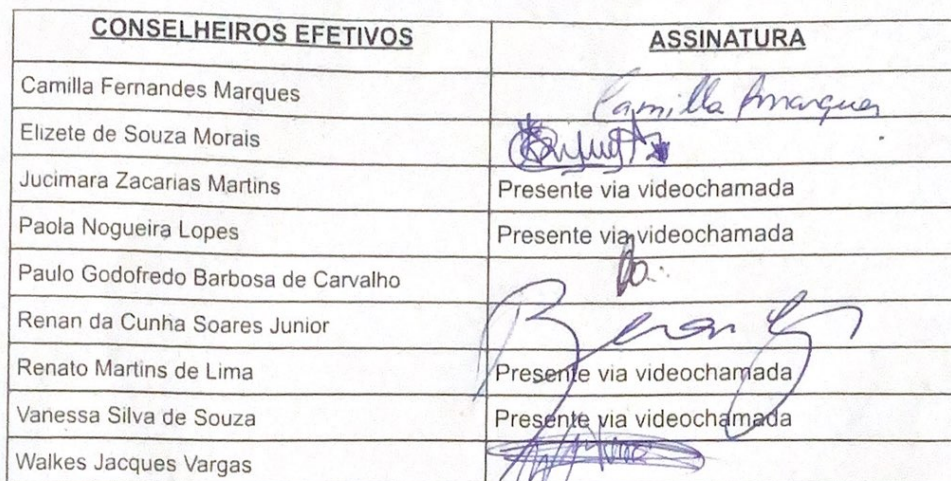 CONSELHEIROS EFETIVOS ASSINATURA
Camilla Fernandes Marques Camilla Fmarques
Elizete de Souza Morais
Jucimara Zacarias Martins Presente via videochamada
Paola Nogueira Lopes Presente via videochamada
Paulo Godofredo Barbosa de Carvalho
Renan da Cunha Soares Junior
Renato Martins de Lima Presente via videochamada
Vanessa Silva de Souza Presente via videochamada
Walkes Jacques Vargas